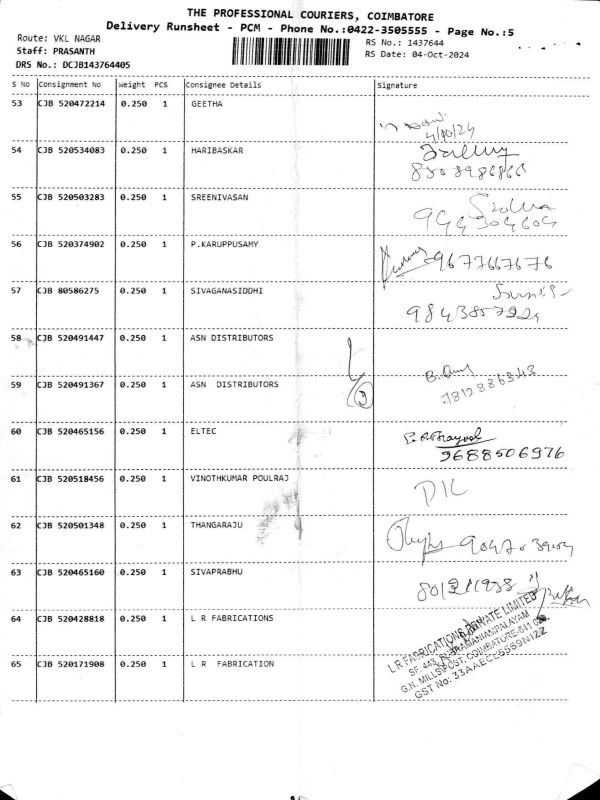 THE PROFESSIONAL COURIERS, COIMBATORE
Delivery Runsheet - PCM - Phone No.:0422-3505555 - Page No.:5
Route: VKL NAGAR
Staff: PRASANTH
DRS No.: DCJB143764405
RS No.: 1437644
RS Date: 04-Oct-2024
S No Consignment No Weight PCS Consignee Details Signature
53 CJB 520472214 0.250 1 GEETHA
4/10/24
54 CJB 520534083 0.250 1 HARIBASKAR
55 CJB 520503283 0.250 1 SREENIVASAN
56 CJB 520374902 0.250 1 P.KARUPPUSAMY
9677667676
57 CJB 80586275 0.250 1 SIVAGANASIDDHI
58 CJB 520491447 0.250 1 ASN DISTRIBUTORS
59 CJB 520491367 0.250 1 ASN DISTRIBUTORS
7812886343
60 CJB 520465156 0.250 1 ELTEC
9688506976
61 CJB 520518456 0.250 1 VINOTHKUMAR POULRAJ
62 CJB 520501348 0.250 1 THANGARAJU
63 CJB 520465160 0.250 1 SIVAPRABHU
64 CJB 520428818 0.250 1 L R FABRICATIONS
65 CJB 520171908 0.250 1 L R FABRICATION
L R FABRICATIONS PRIVATE LIMITED
G.N. MILLS POST, COIMBATORE-641
GST No: 33AAECL5569N1ZZ